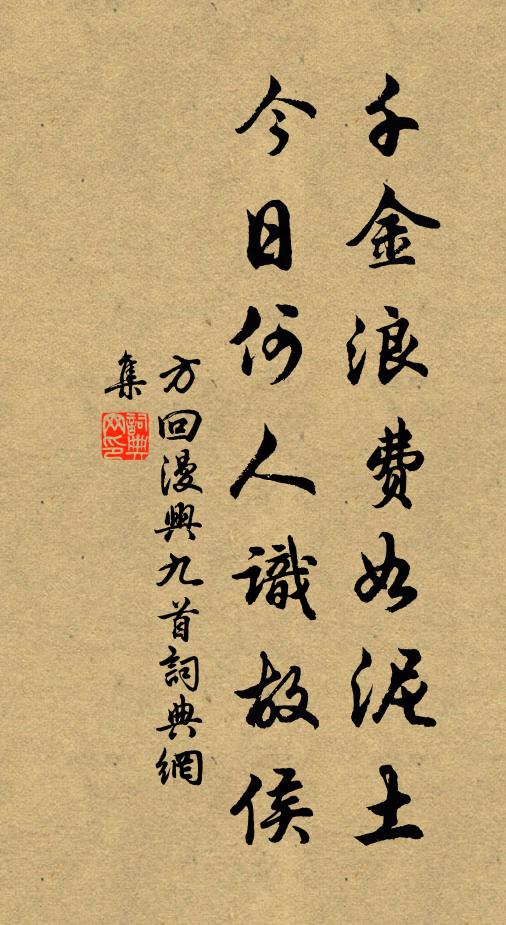 千金浪費如泥土
今日何人識故侯
方回漫興九首詞典網
集
詞典
網印